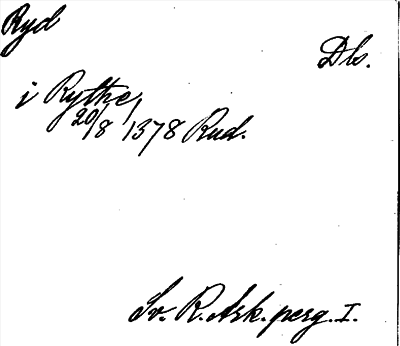 Ryd
Dls.
i Rythe,
20/8 1378 Rud.
Sv. R. Ark. perg. I.